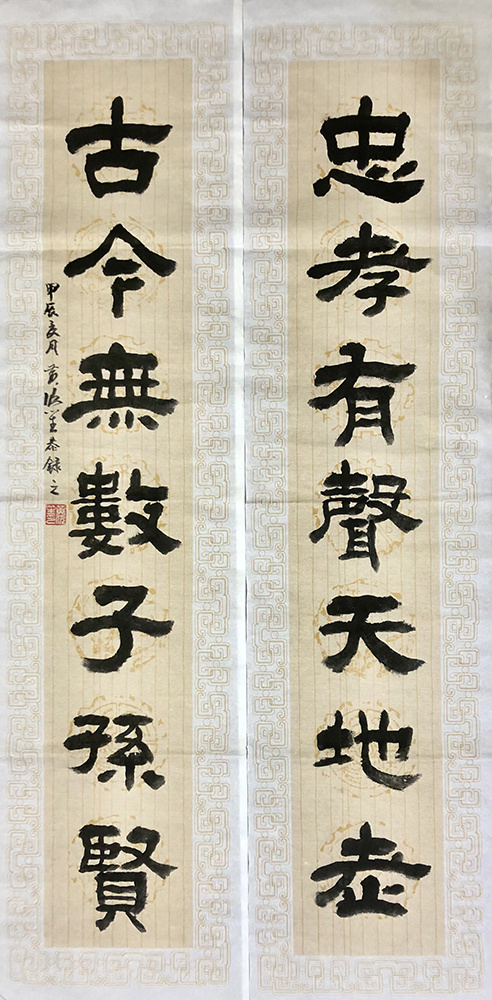 忠孝有聲天地老
古今無數子孫賢
甲辰 月 黄 恭録之